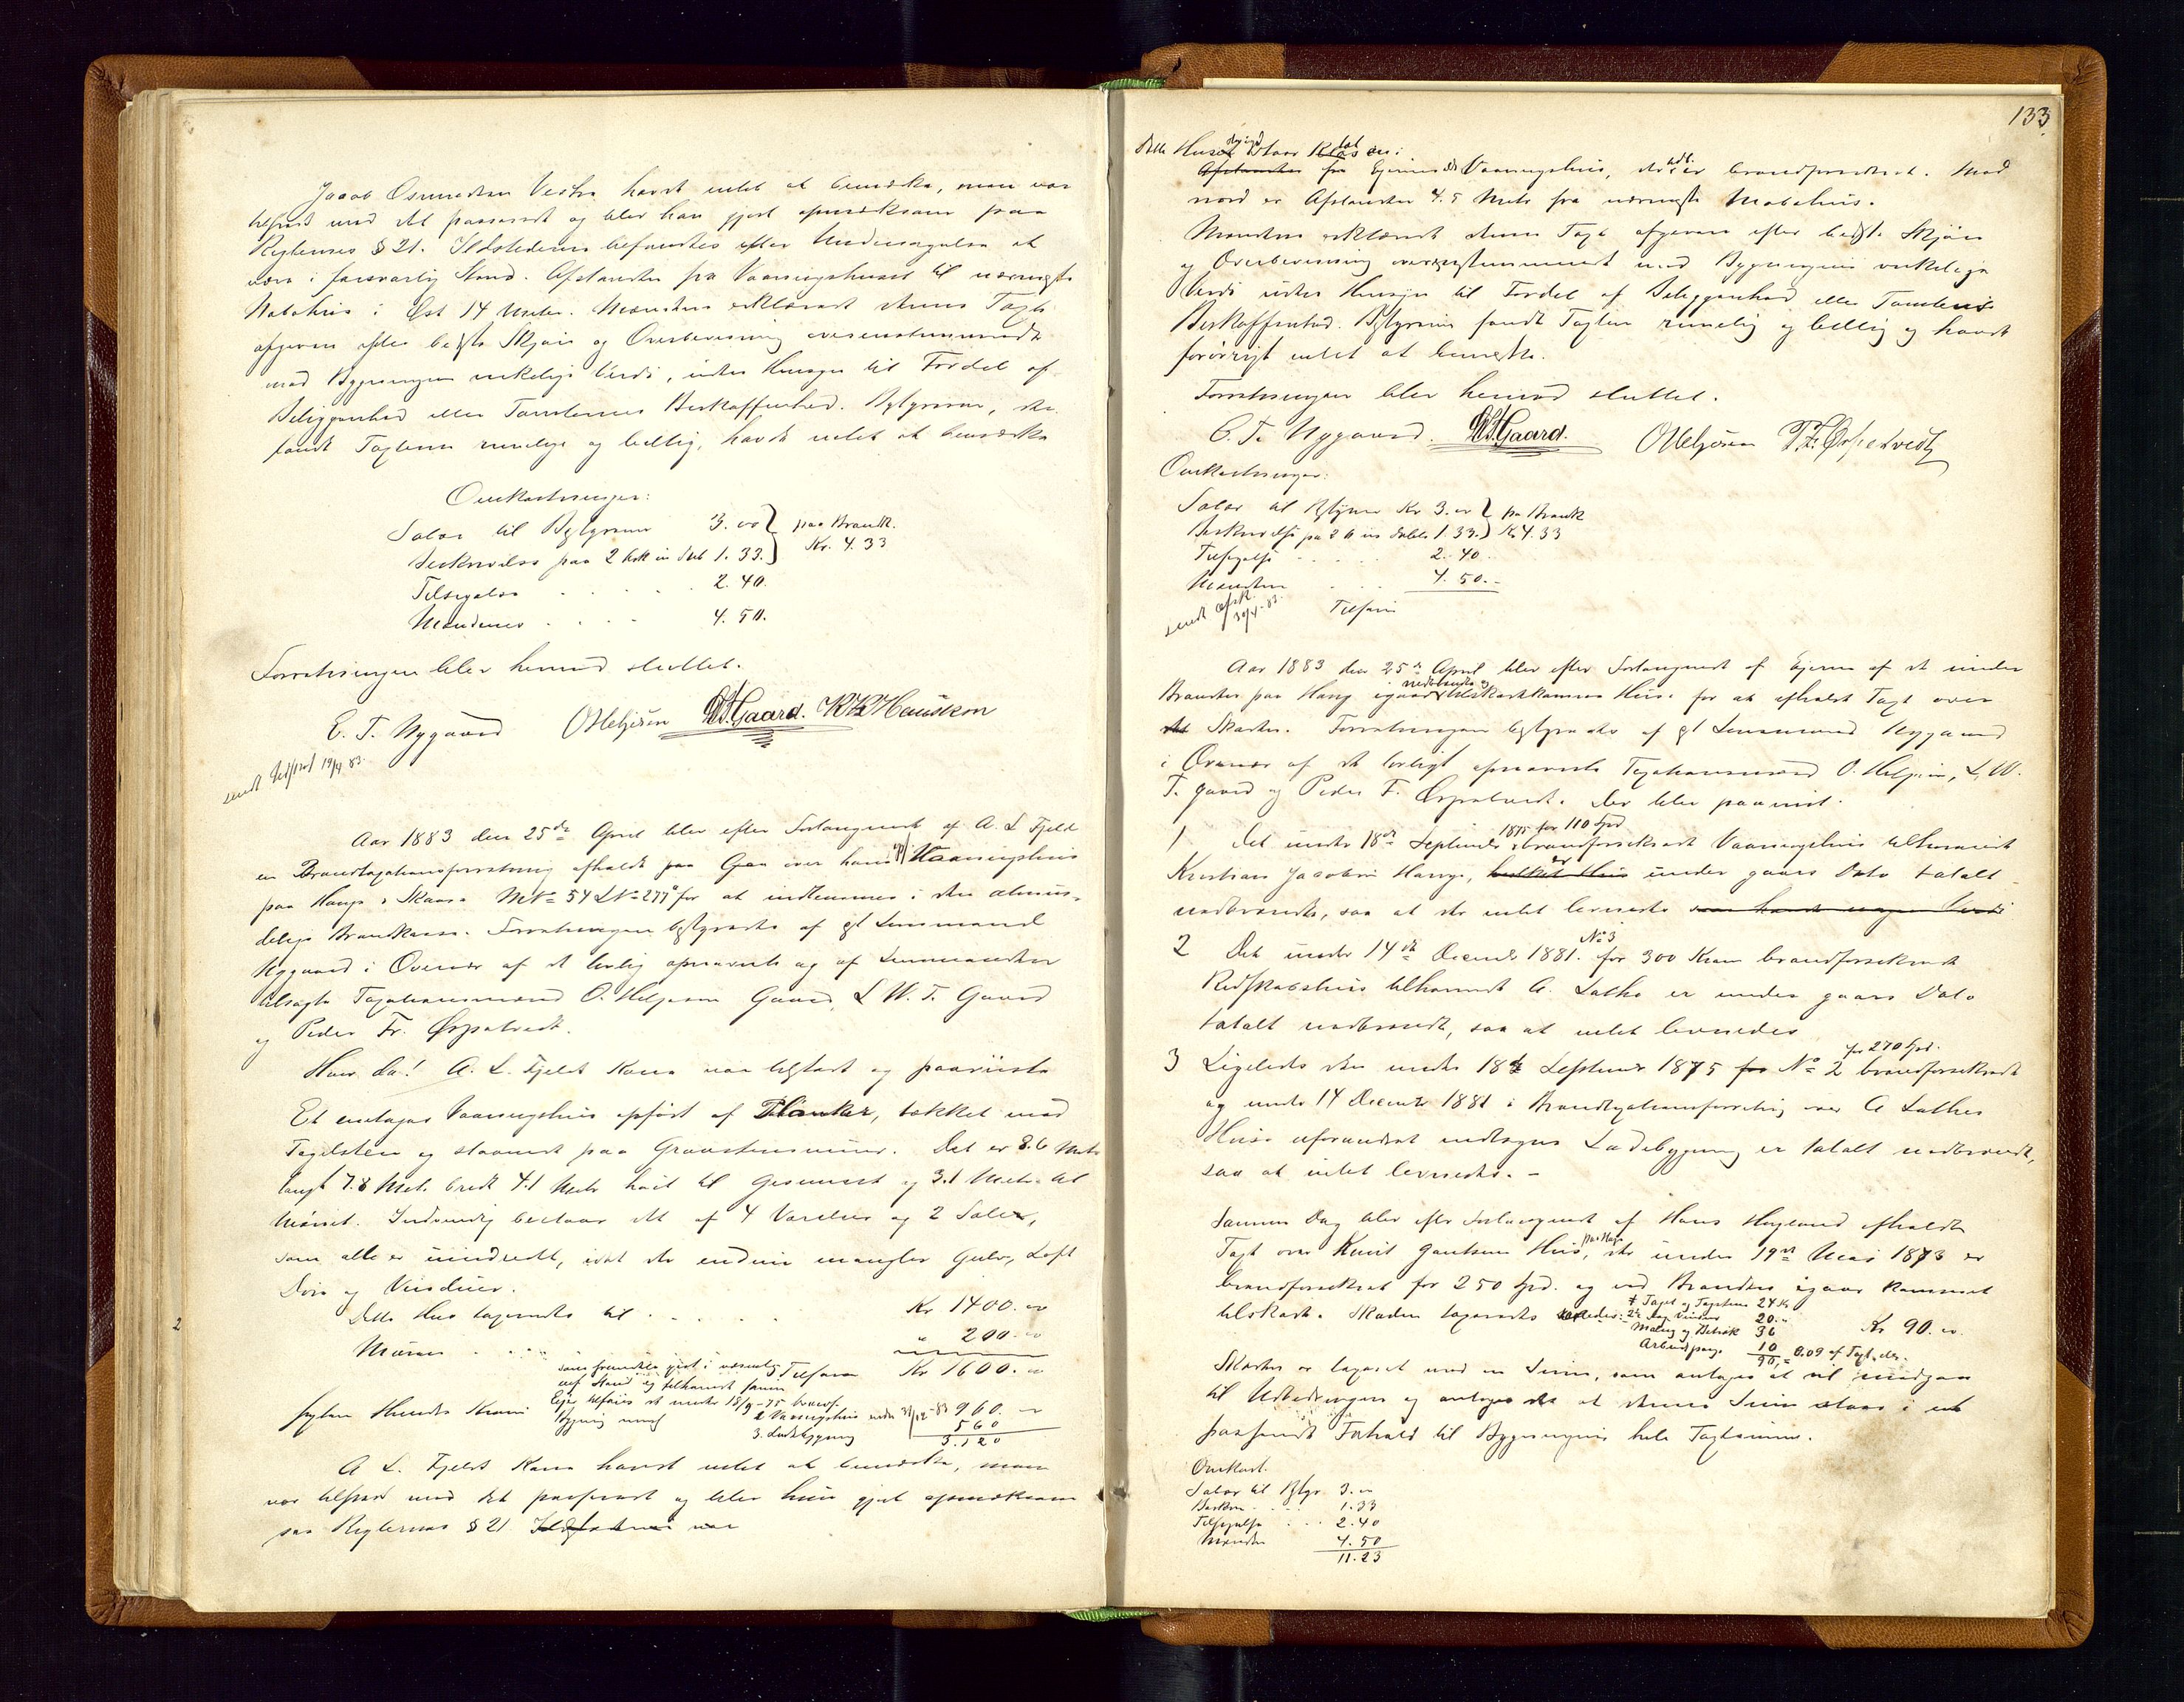 Jacob Osmundsen Vestbø havde intet at bemærke, men var
tilfreds med det passerede og blev han gjort opmærksom paa
Reglernes § 21. Ildstederne befandtes efter Undersøgelse at
være i forsvarlig Stand. Afstanden fra Vaaningshuset til nærmeste
Nabohus i Øst 14 Meter. Mændene erklærede denne Taxt
afgiven efter bedste Skjøn og Overbevisning overensstemmende
med Bygningens virkelige Værdi, uden Hensyn til Fordel af
Beliggenhed eller Tomternes Beskaffenhed. Bestyreren, der
fandt Taxterne rimelige og billig, havde intet at bemærke
Omkostninger:
Salær til Bestyreren 3.00 } paa Brandk.
Beskrivelse paa 2 Ark in dubl 1.33. } Kr. 4.33
Tilsigelse . . . 2.40.
Mændenes . . . 4.50.
Forretningen blev hermed sluttet.
E. T. Nygaard O Helgesen LWTGaard.
sendt 19/4 83.
Aar 1883 den 25de April blev efter Forlangende af A. L Fjeld
en Brandtaxationsforretning afholdt paa over hans Vaaningshus
paa Hauge i Skaare MNo 54 LNo 277a for at indlemmes i den almin-
delige Brandkasse. Forretningen bestyredes af gl Lensmand
Nygaard i Overvær af de lovlig opnævnte og af Lensmanden
tilsagte Taxationsmænd O. Helgesen Gaard, L W. T. Gaard
og Peder Fr. Øspetvedt.
Hvor da! A. L. Fjelds Kone var tilstede og paaviste
Et entages Vaaningshus opført af Planker, tækket med
Tagelsten og staaende paa Graastensmure. Det er 8.6 Meter
langt 7.8 Met. bredt 4.1 Meter høit til Gesimset og 3.1 Meter til
Mønet. Indvendig bestaar det af 4 Værelser og 2 Saler,
som alle er uindredt, idet der endnu mangler Gulv, Loft
Døre og Vinduer.
2
Dette Hus taxeredes til . . . . Kr 1400.00
Muren . . . . " 200.00
Tilsammen Kr 1600.00
sexten Hundrede Kroner
under 31/12-83 960.00
3. Ladebygning 560
3.120
A L. Fjelds Kone havde intet at bemærke, men
var tilfreds med det passerede og blev hun gjort opmærksom
paa Reglernes § 21 Ildstederne var
133
Dette Huset staar
Afstanden fra Ejerens Vaaningshus, der er brandforsikret. Mod
nord er Afstanden 4.5 Meter fra nærmeste Nabohus.
Mændene erklærede denne Taxt afgiven efter bedste Skjøn
og Overbevisning overensstemmende med Bygningens virkelige
Værdi uden Hensyn til Fordel af Beliggenhed eller Tomtens
Beskaffenhed. Bestyreren fandt Taxten rimelig og billig og havde
forøvrigt intet at bemærke.
Forretningen blev hermed sluttet.
E. T. Nygaard. LWTGaard. O Helgesen P. Fr. Øspetvedt
Omkostninger:
Salær til Bestyrer Kr 3.00 } paa Brandk
Beskrivelse paa 2 A in duplo 1.33. } Kr 4.33
Tilsigelse . . . . 2.40.
Mændene . . . 4.50.-
sendt Afsk. 30/4-83. Tilsam
Aar 1883 den 25de April blev efter Forlangende af Ejerne af de under
Branden paa Haug igaar nedbrændte og tilskadekomne Huse for at afholde Taxt over
det Skaden. Forretningen bestyredes af gl Lensmand Nygaard
i Overvær af de lovligt opnævnte Taxationsmænd O. Helgesen, L. W.
T. Gaard og Peder F. Øspetvedt. Der blev paavist.
1 Det under 18de September 1875 for 110 Spd brandforsikrede Vaaningshus tilhørende
Kristian Jacobsen Hauge, hvilket Hus er under gaars Dato totalt
nedbrændt, saa at der intet levnedes
2 Det under 14de December 1881. No 3 for 300 Kroner brandforsikrede
Redskabshus tilhørende A. Lathe er under gaars Dato
totalt nedbrændt, saa at intet levnedes
3 Ligeledes den under 18de September 1875 for No 2 for 270 Spd. brandforsikrede
og under 14 December 1881 i Brandtaxationsforretning over A Lathes
Huse uforandret indtagne Ladebygning er totalt nedbrændt,
saa at intet levnedes. -
Samme Dag blev efter Forlangende af Hans Høgland afholdt
Taxt over Knud Gautsens Hus, paa Hauge, der under 19de Mai 1873 er
brandforsikret for 250 Spd. og ved Branden igaar kommet
tilskade. Skaden taxeredes saaledes: 1 Taget og Tagstene 24 Kr
2de Fag Vinduer 20.
Maling og Betræk 36 Kr 90.00.
Arbeidspenge 10
90, = 0.09 af Taxt.
Skaden er taxeret med en Sum, som antages at vil medgaa
til Udbedringen og antages det at denne Sum staar i et
passende Forhold til Bygningens hele Taxtsum.
Omkost.
Salær til Bestyr 3.00
Beskriv . . . 1.33
Tilsigelse . . . 2.40
Mænden 4.50
11.23